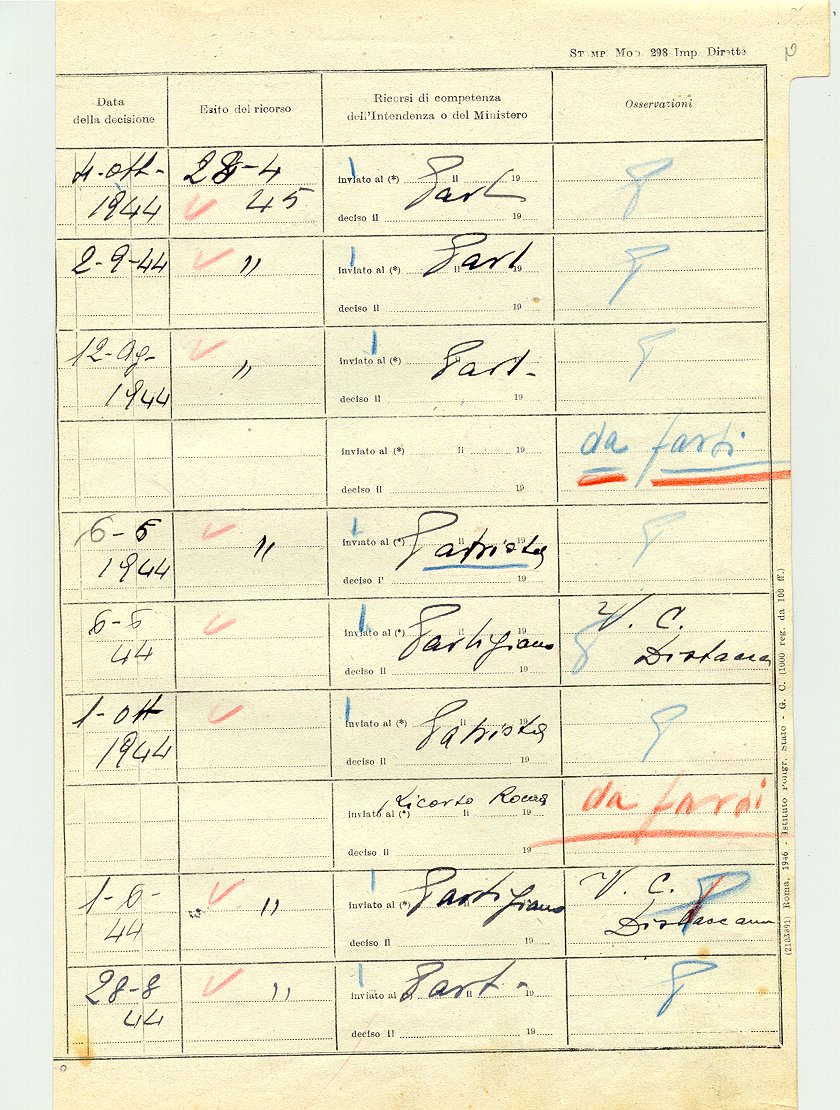 STAMP. MOD. 298 Imp. Dirette
Data della decisione
Esito del ricorso
Ricorsi di competenza dell'Intendenza o del Ministero
Osservazioni
4-ott- 28-4
inviato al (*) Part il 19
1944 45
deciso il 19
2-9-44 "
inviato al (*) Part il 19
deciso il 19
12-Ag- "
inviato al (*) Part- 19
1944
deciso il 19
inviato al (*) il 19
da farsi
deciso il 19
6-5 "
inviato al (*) Patriota 19
1944
deciso il 19
6-5
inviato al (*) Partigiano il 19
V. C.
44
Distacca
deciso il 19
1-ott
inviato al (*) Patriota il 19
1944
deciso il 19
Ricorso Roma
inviato al (*) il 19
da farsi
deciso il 19
1-6- "
inviato al (*) Partigiano
V. C.
44
deciso il 19
28-8 "
inviato al (*) Part- il 19
44
deciso il 19
(2103891) Roma, 1946 - Istituto Poligr. Stato - G. C. (1000 reg. da 100 ff.)